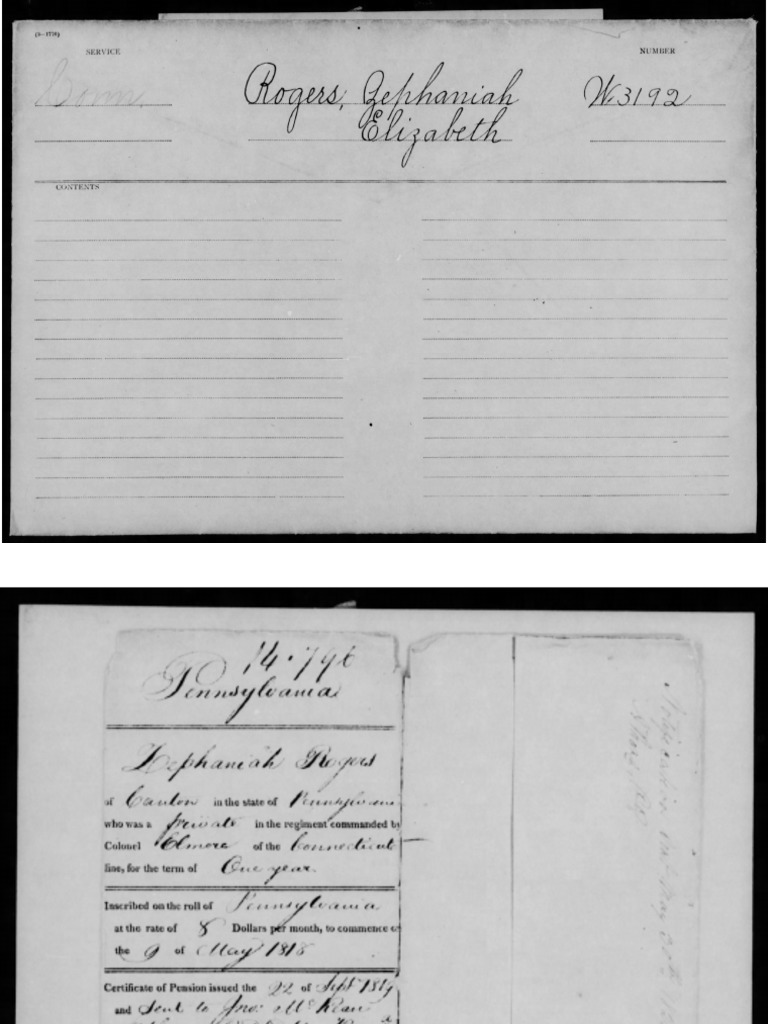 (3—1756)
SERVICE
NUMBER
Conn.
Rogers, Zephaniah
W.3192
Elizabeth
CONTENTS
14.796
Pennsylvania
Zephaniah Rogers
of Canton in the state of Pennsylvania
who was a private in the regiment commanded by
Colonel Elmore of the Connecticut
line, for the term of One year.
Inscribed on the roll of Pennsylvania
at the rate of 8 Dollars per month, to commence on
the 9 of May 1818
Certificate of Pension issued the 22 of Sept 1819
and sent to Jno: McKean